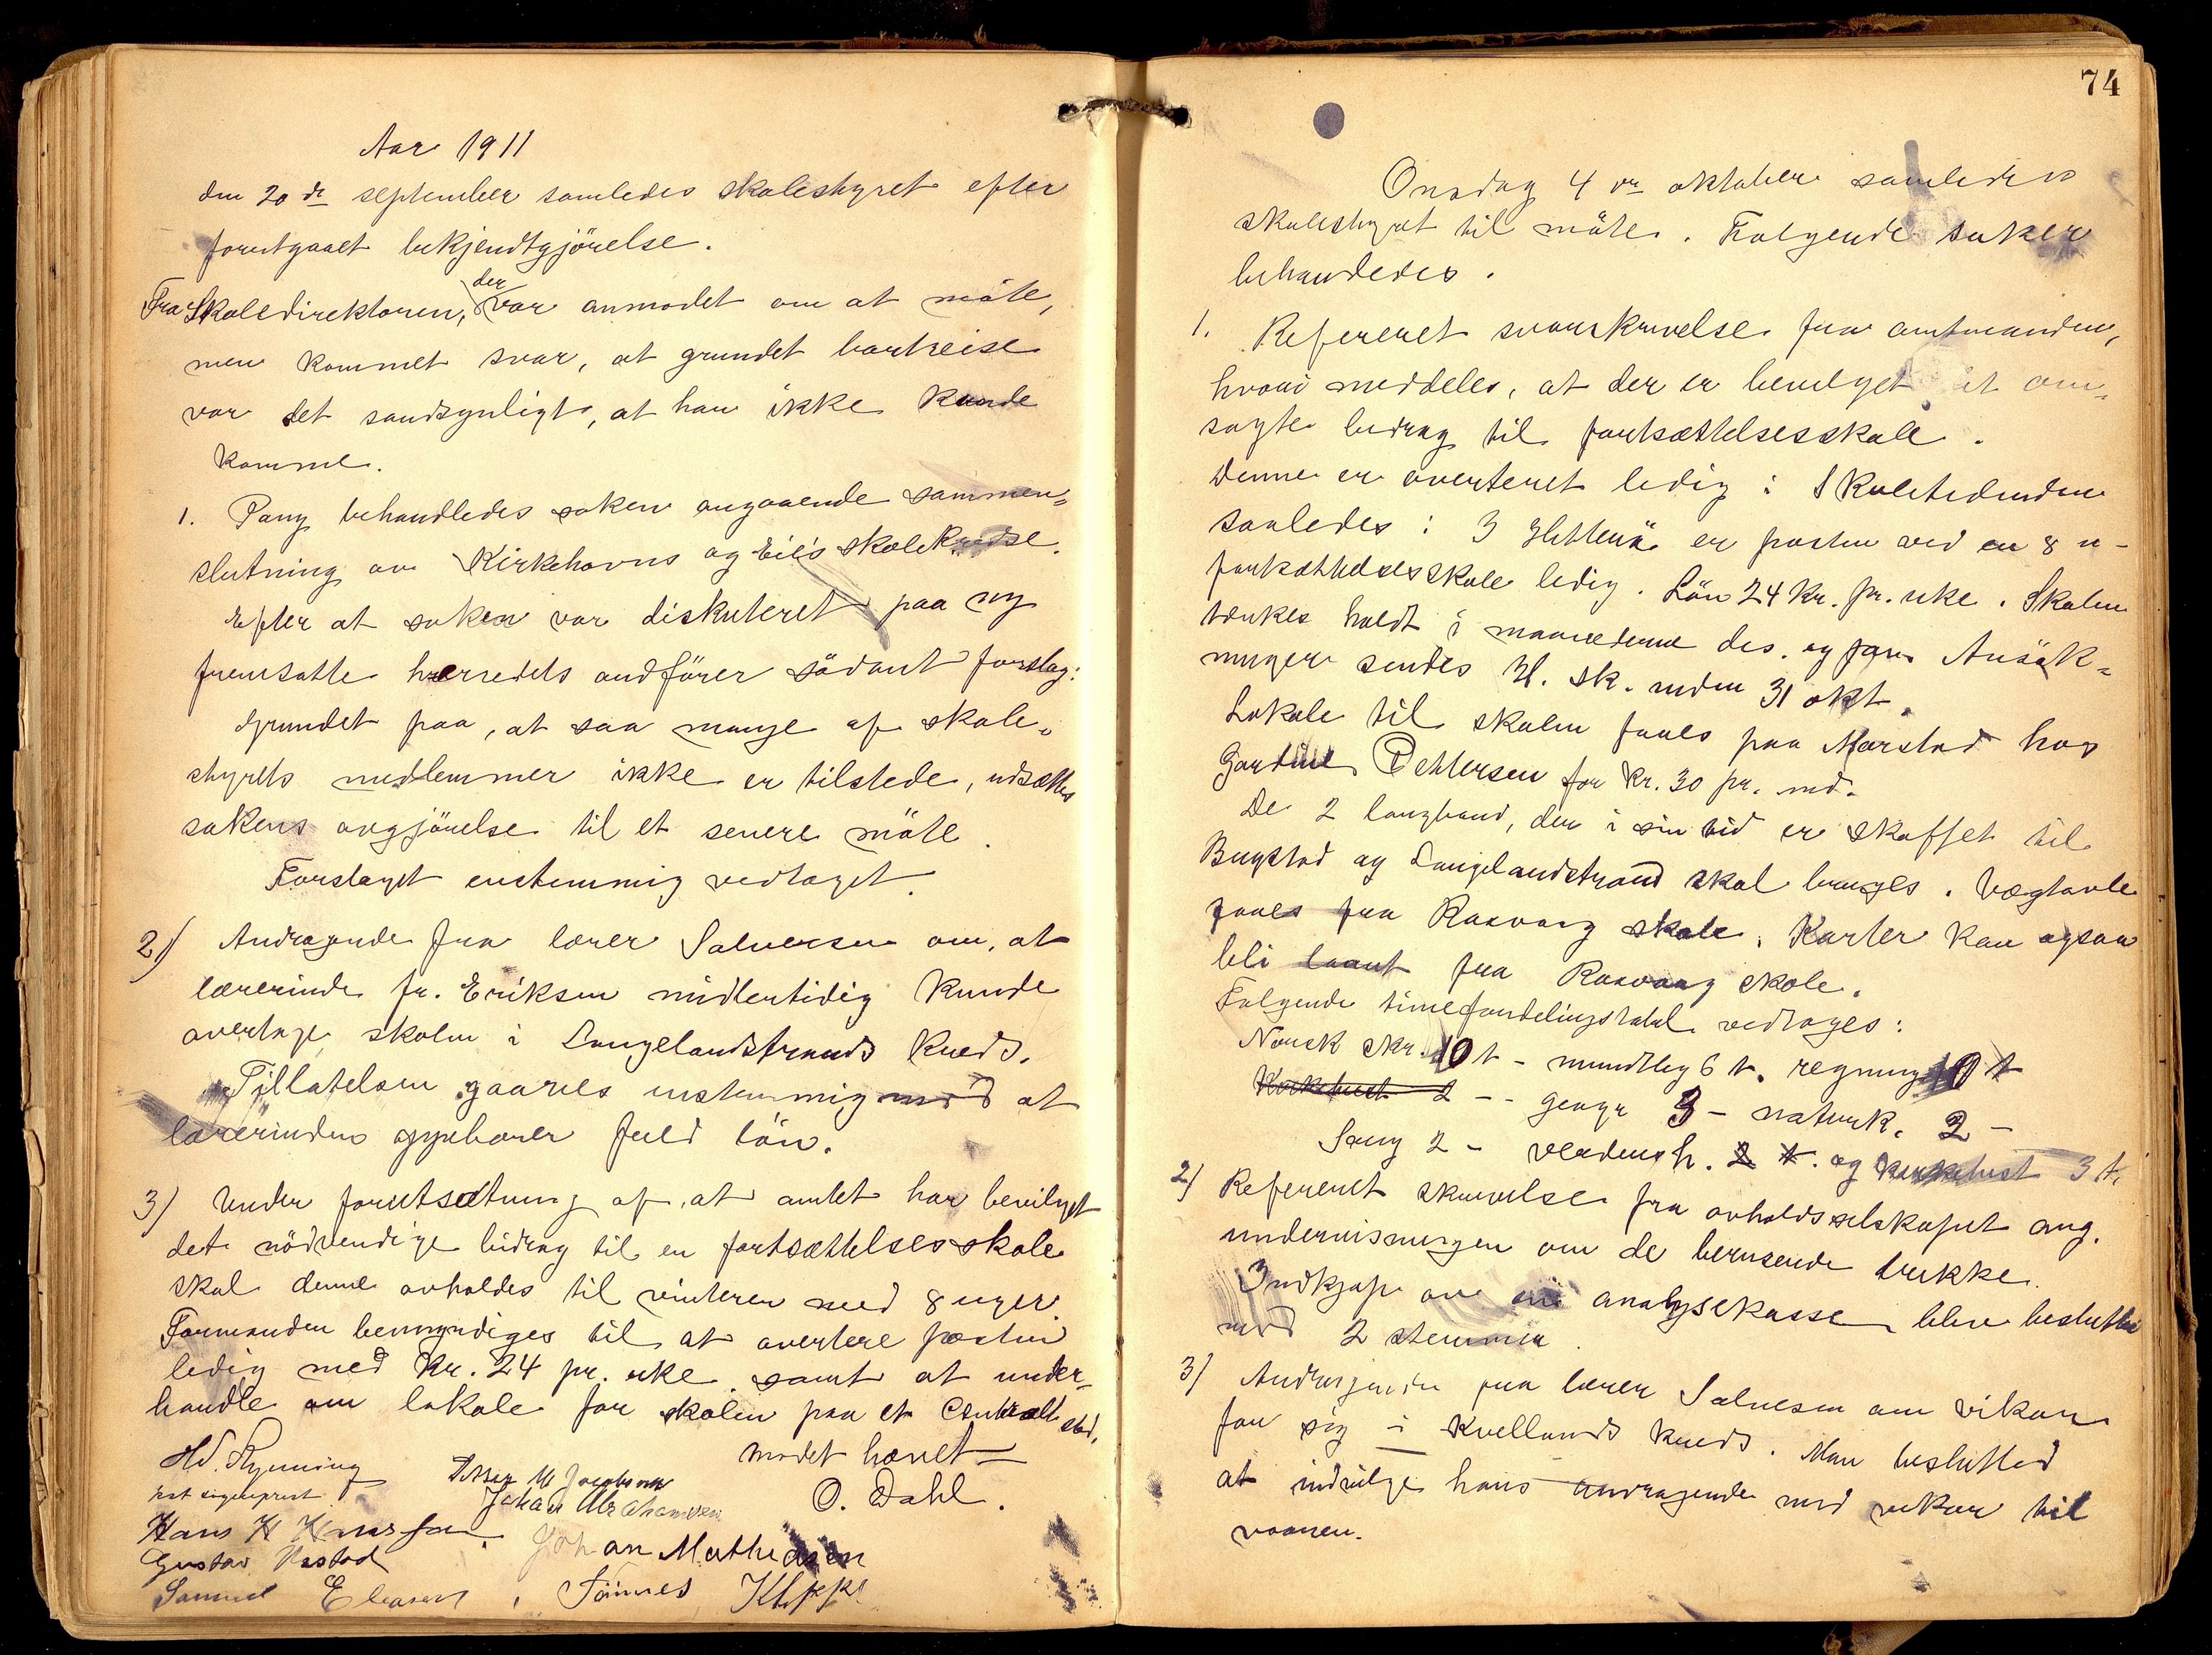 Aar 1911
den 20de september samledes skolestyret efter
forutgaaet bekjendtgjörelse.
Fra Skoledirektoren, der var anmodet om at möte,
men kommet svar, at grundet bortreise
var det sandsynligt, at han ikke kunde
komme.
1. Paany behandledes saken angaaende sammen=
slutning av Kirkehavns og Eie's skolekredse.
Efter at saken var diskuteret paa ny
fremsatte herredets ordförer södant forslag:
Grundet paa, at saa mange af skole=
styrets medlemmer ikke er tilstede, utsættes
sakens avgjörelse til et senere möte.
Forslaget enstemmig vedtaget.
2) Andragende fra lærer Salvesen om, at
lærerinde fr. Eriksen midlertidig kunde
overtage skolen i Langelandstrands kreds.
Tillatelsen gaaves enstemmig mod at
lærerinden oppebærer fuld lön.
3) Under forutsætning af, at amtet har bevilget
det nödvendige bidrag til en fortsættelsesskole
skal denne avholdes til vinteren med 8 uger.
Formanden bemyndiges til at avertere posten
ledig med kr. 24 pr. uke samt at under=
handle om lokale for skolen paa et centralt sted.
Mödet hævet
O. Dahl.
Johan Abrahamsen
Hans H Hansson
Johan Mathiassen
Gustav
Samuel Eliasen, Tönnes Kleppe
74
Onsdag 4de oktober samledes
skolestyret til möte. Folgende saker
behandedes.
1. Refereret svarskrivelse fra amtmanden,
hvori meddeles, at der er bevilget et om=
sogte bidrag til fortsættelsesskole.
Denne er averteret ledig i Skoletidenden
saaledes: I Hitterö er posten ved en 8 u-
fortsættelsesskole ledig. Lön 24 kr. pr. uke. Skolen
tænkes holdt i maanederne des. og jan. Ansök=
ninger sendes H. sk. inden 31 okt.
Lokale til skolen faaes paa Marstad hos
Gardine Pettersen for kr. 30 pr. md.
De 2 langbord, der i sin tid er skaffet til
Bugstad og Langelandstrand skal bruges. Vægtavle
faaes fra Rasvaag skole. Karter kan ogsaa
bli laant fra Rasvaag skole.
Folgende timefordelingstabel vedtages:
Norsk skr. 10 t - mundtlig 6 t. regning 10 t
Kirkehist 2 -- geogr 3 - naturk. 2 -
Sang 2 - verdensh. 2 t. og kirkehist 3 t.
2) Refereret skrivelse fra avholdsselskapet ang.
undervisningen om de berusende drikke.
Indkjöp av en analysekasse blev besluttet
mod 2 stemmer.
3) Andragende fra lærer Salvesen om vikar
for sig i Kvellands kreds. Man besluttet
at indvilge hans andragende med vikar til
vaaren.